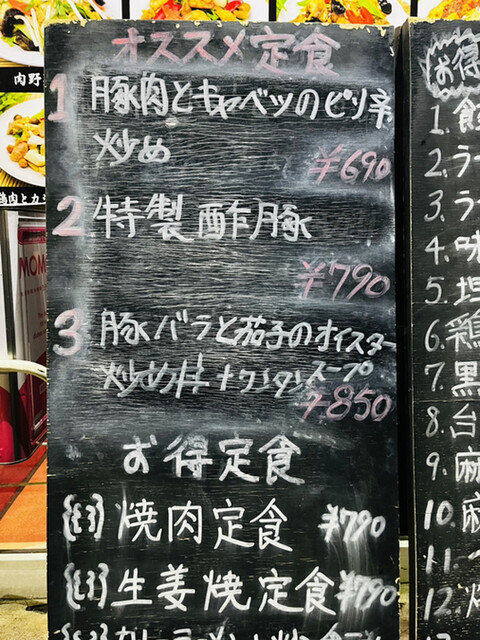 オススメ定食
1 豚肉とキャベツのピリ辛
炒め
¥690
2 特製酢豚
¥790
3 豚バラと茄子のオイスター
炒め丼+ワンタンスープ
¥850
お得定食
焼肉定食 ¥790
生姜焼定食 ¥790
肉野
鶏肉とカシ
MOM
お得
1.
2.ラー
3.ラー
4.味
5.坦
6.鶏
7.黒
8.台
9.麻
10.麻
11.
12.